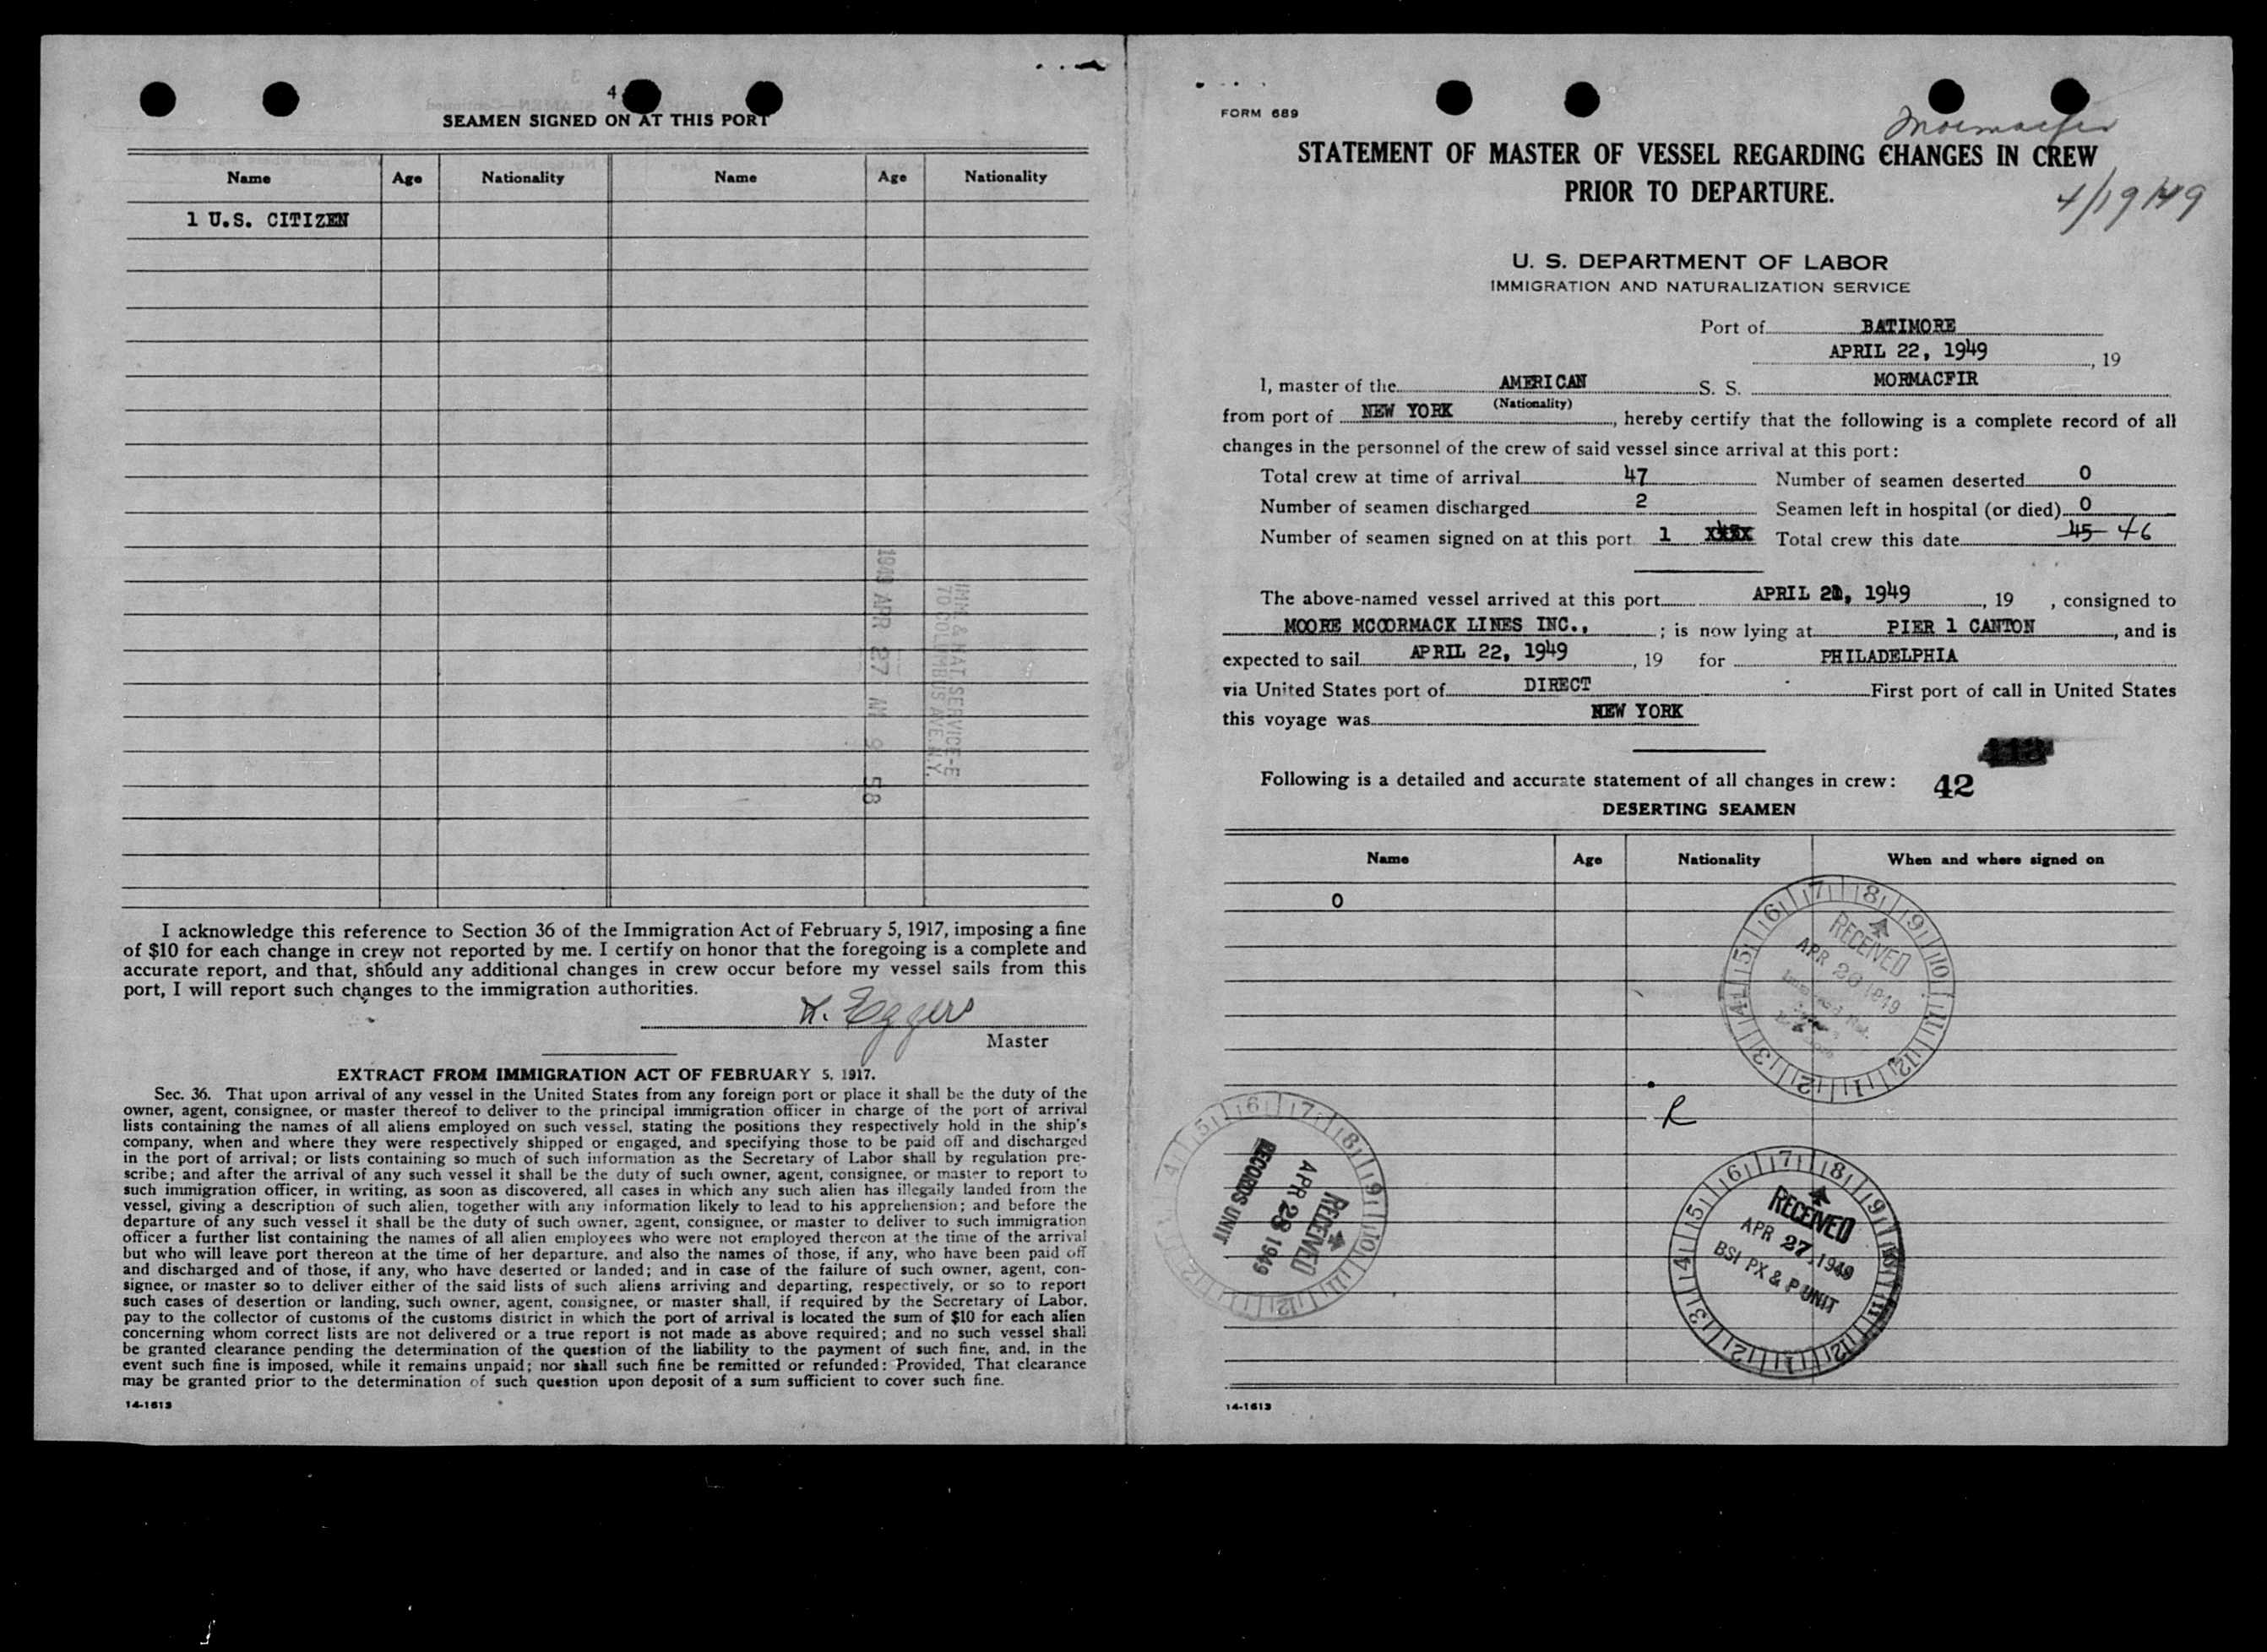 4
SEAMEN SIGNED ON AT THIS PORT
Name Age Nationality Name Age Nationality
1 U.S. CITIZEN
1949 APR 27 M 9 58
IMM. & NAT SERVICE-E
70 COLUMBUS AVE. N.Y.
I acknowledge this reference to Section 36 of the Immigration Act of February 5, 1917, imposing a fine
of $10 for each change in crew not reported by me. I certify on honor that the foregoing is a complete and
accurate report, and that, should any additional changes in crew occur before my vessel sails from this
port, I will report such changes to the immigration authorities.
H. Eggers
Master
EXTRACT FROM IMMIGRATION ACT OF FEBRUARY 5, 1917.
Sec. 36. That upon arrival of any vessel in the United States from any foreign port or place it shall be the duty of the
owner, agent, consignee, or master thereof to deliver to the principal immigration officer in charge of the port of arrival
lists containing the names of all aliens employed on such vessel, stating the positions they respectively hold in the ship's
company, when and where they were respectively shipped or engaged, and specifying those to be paid off and discharged
in the port of arrival; or lists containing so much of such information as the Secretary of Labor shall by regulation pre-
scribe; and after the arrival of any such vessel it shall be the duty of such owner, agent, consignee, or master to report to
such immigration officer, in writing, as soon as discovered, all cases in which any such alien has illegally landed from the
vessel, giving a description of such alien, together with any information likely to lead to his apprehension; and before the
departure of any such vessel it shall be the duty of such owner, agent, consignee, or master to deliver to such immigration
officer a further list containing the names of all alien employees who were not employed thereon at the time of the arrival
but who will leave port thereon at the time of her departure, and also the names of those, if any, who have been paid off
and discharged and of those, if any, who have deserted or landed; and in case of the failure of such owner, agent, con-
signee, or master so to deliver either of the said lists of such aliens arriving and departing, respectively, or so to report
such cases of desertion or landing, such owner, agent, consignee, or master shall, if required by the Secretary of Labor,
pay to the collector of customs of the customs district in which the port of arrival is located the sum of $10 for each alien
concerning whom correct lists are not delivered or a true report is not made as above required; and no such vessel shall
be granted clearance pending the determination of the question of the liability to the payment of such fine, and, in the
event such fine is imposed, while it remains unpaid; nor shall such fine be remitted or refunded: Provided, That clearance
may be granted prior to the determination of such question upon deposit of a sum sufficient to cover such fine.
14-1613
FORM 689
Mormacfir
STATEMENT OF MASTER OF VESSEL REGARDING CHANGES IN CREW
PRIOR TO DEPARTURE.
4/19/49
U. S. DEPARTMENT OF LABOR
IMMIGRATION AND NATURALIZATION SERVICE
Port of BATIMORE
APRIL 22, 1949, 19
I, master of the AMERICAN S. S. MORMACFIR
(Nationality)
from port of NEW YORK, hereby certify that the following is a complete record of all
changes in the personnel of the crew of said vessel since arrival at this port:
Total crew at time of arrival 47 Number of seamen deserted 0
Number of seamen discharged 2 Seamen left in hospital (or died) 0
Number of seamen signed on at this port 1 Total crew this date 45 46
The above-named vessel arrived at this port APRIL 21, 1949, 19 , consigned to
MOORE MCCORMACK LINES INC., ; is now lying at PIER 1 CANTON, and is
expected to sail APRIL 22, 1949, 19 for PHILADELPHIA
via United States port of DIRECT First port of call in United States
this voyage was NEW YORK
Following is a detailed and accurate statement of all changes in crew: 42
DESERTING SEAMEN
Name Age Nationality When and where signed on
0
RECEIVED
APR 26 1949
R
RECEIVED
APR 28 1949
RECORDS UNIT
RECEIVED
APR 27 1949
BSI PX & P UNIT
14-1613